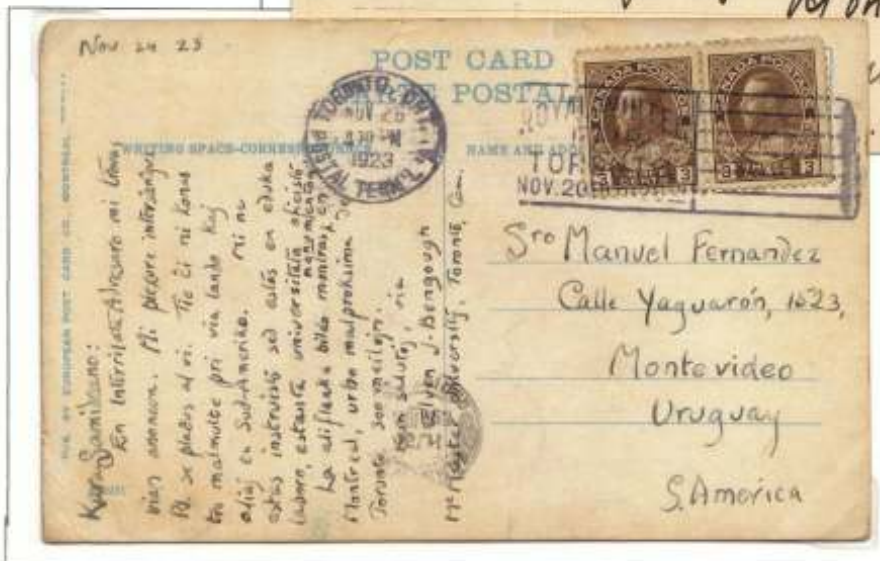 Nov 24 23
POST CARD
CARTE POSTALE
WRITING SPACE-CORRES
NAME AND ADD
TORONTO, ONT.
NOV 26
8 30 PM
1923
POSTAL TERM'L A
ROYAL WINT
TOR
NOV. 20
CANADA POSTAGE
3 CENTS 3
CANADA POSTAGE
3 CENTS 3
BY EUROPEAN POST CARD CO. MONTREAL
Kara Samideano:
En Interrilata Adresaro mi
vian anoncon. Mi plezure intersanĝus
P.K. se plaĉus al vi. Tie ĉi ni konas
tre malmulte pri via lando kaj
aliaj en Sud-Ameriko. Mi ne
estas instruisto sed estas en eduka
laboro, estante universitata oficisto
nunmomente
La aliflanka bildo montras
Montreal, urbo malproksima de
Toronto 300 mejlojn.
kun salutoj, via
J. Bengough
McMaster University, Toronto, Can.
Sro Manuel Fernandez
Calle Yaguarón, 1523,
Montevideo
Uruguay
S. America